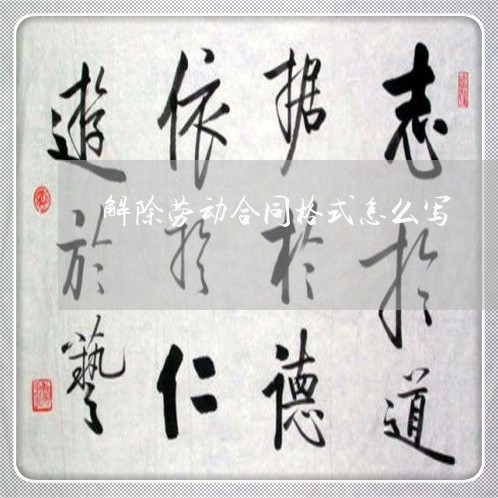 志於道
据於德
依於仁
遊於藝
解除劳动合同格式怎么写